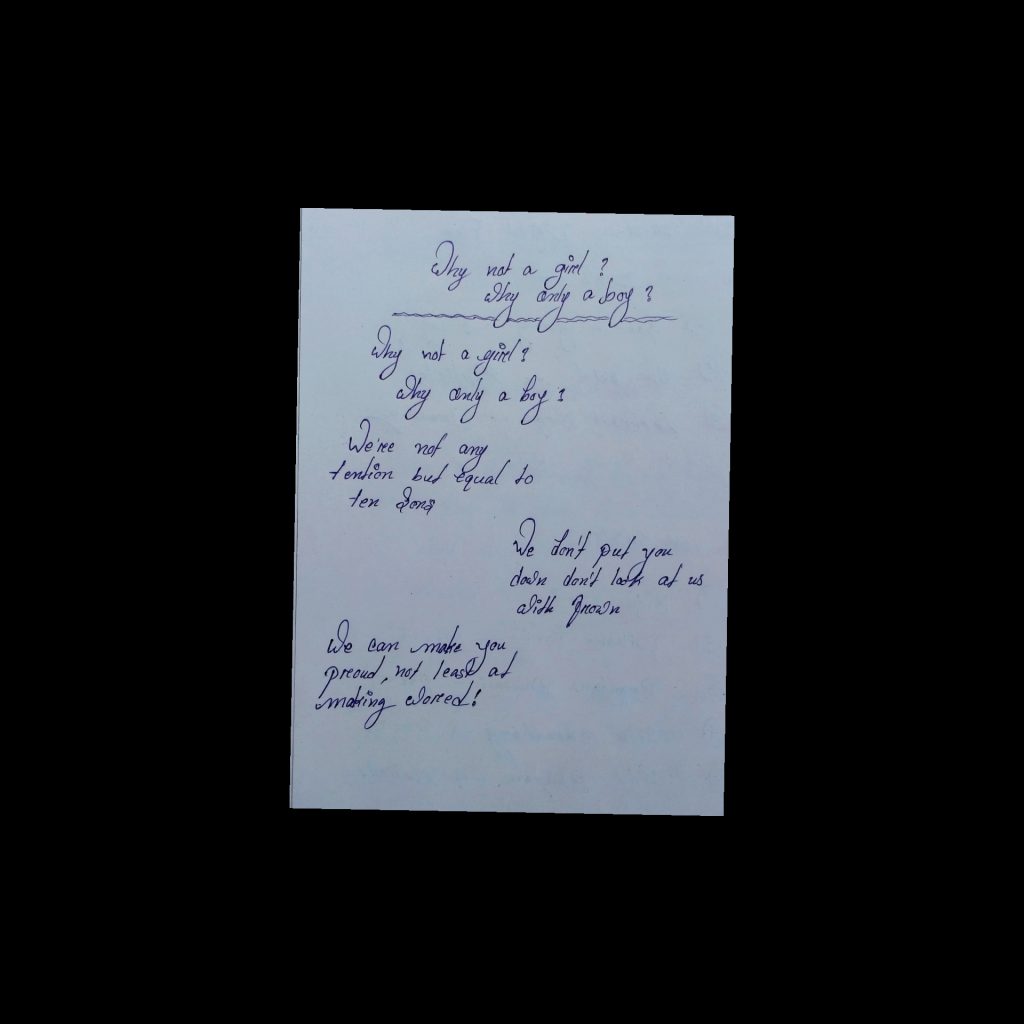 Why not a girl ?
Why only a boy ?
Why not a girl ?
Why only a boy ?
We're not any
tention but equal to
ten sons
We don't put you
down don't look at us
with frown
We can make you
proud, not least at
making